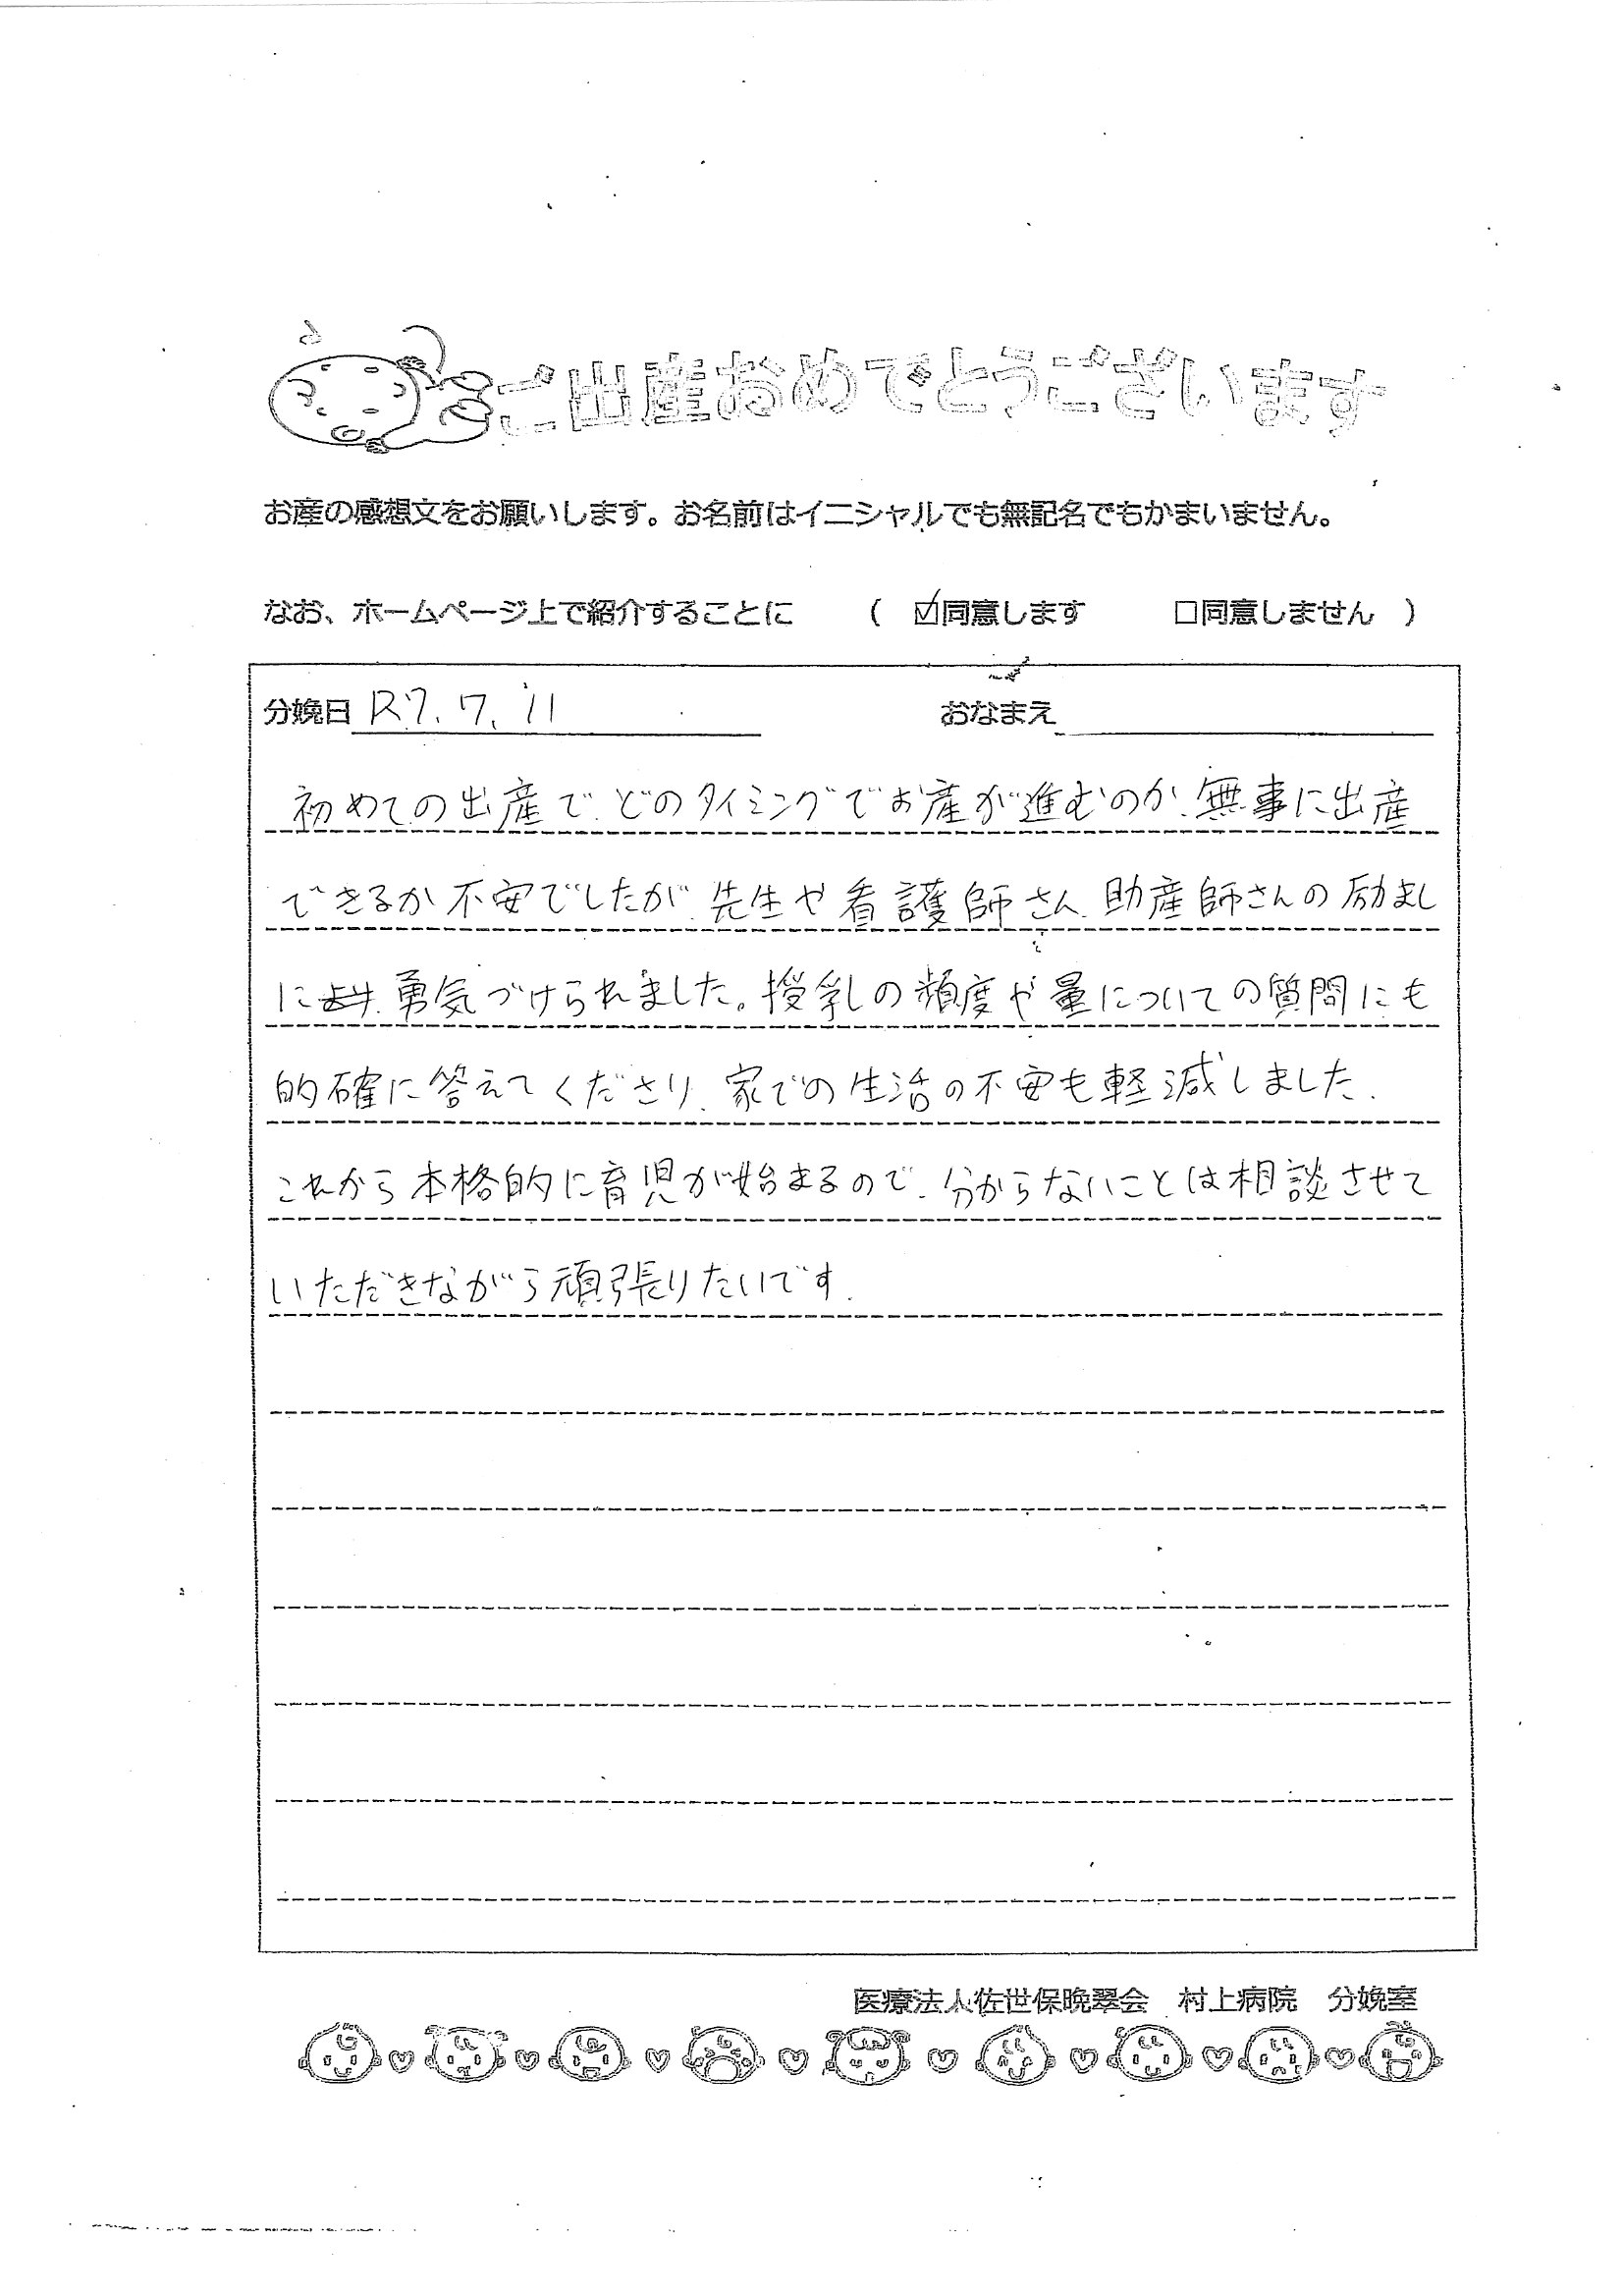 ご出産おめでとうございます
お産の感想文をお願いします。お名前はイニシャルでも無記名でもかまいません。
なお、ホームページ上で紹介することに ( ☑同意します □同意しません )
分娩日 R7.7.11 おなまえ
初めての出産で、どのタイミングでお産が進むのか、無事に出産
できるか不安でしたが、先生や看護師さん、助産師さんの励まし
に 勇気づけられました。授乳の頻度や量についての質問にも
的確に答えてくださり、家での生活の不安も軽減しました。
これから本格的に育児が始まるので、分からないことは相談させて
いただきながら頑張りたいです。
医療法人佐世保晩翠会 村上病院 分娩室